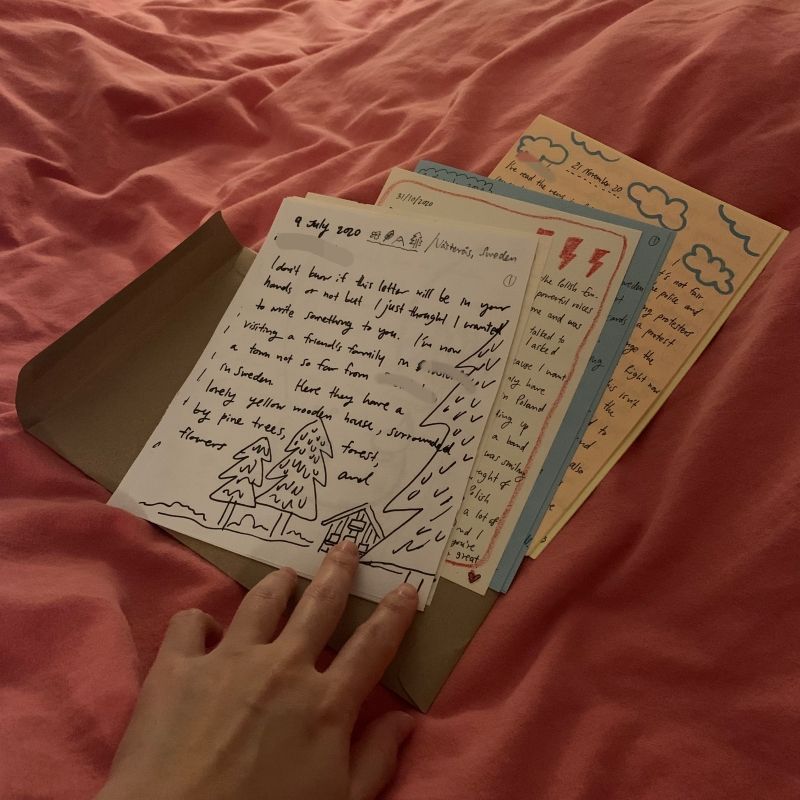 9 July 2020 / Västerås, Sweden
①
I don't know if this letter will be in your
hands or not but I just thought I wanted
to write something to you. I'm now
visiting a friend's family in
a town not so far from
in Sweden. Here they have a
lovely yellow wooden house, surrounded
by pine trees, forest,
flowers and
31/10/2020
the Polish
powerful voices
me and was
talked to
I asked
cause I want
ly have
in Poland
ing up
a band
was smiling
ught of
Polish
a lot of
nd I
you're
great
①
ards
ing
21 November 20
I've read the news
I
it's not fair
the police and
ng protesters
a protest
ge the
Right now
this isn't
the
d to
nd
also